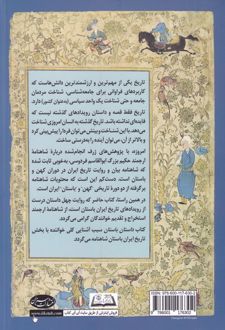 تاریخ یکی از مهم‌ترین و ارزشمندترین دانش‌هاست که
کاربردهای فراوانی برای جامعه‌شناسی، شناخت مردمان
جامعه و حتی شناخت یک واحد سیاسی (به‌عنوان کشور) دارد.
تاریخ فقط قصه و داستان رویدادهای گذشته نیست که
فایده‌ای نداشته باشد. تاریخ گذشته به انسان امروزی شناخت
می‌دهد. با این شناخت و بینش می‌توان فردا را پیش‌بینی کرد
و بالاتر از آن، می‌توان آینده را به‌درستی ساخت.
امروزه، با پژوهش‌های ژرف انجام‌شده دربارهٔ شاهنامهٔ
ارجمند حکیم بزرگ ابوالقاسم فردوسی، به‌خوبی ثابت شده
که شاهنامه بیان و روایت تاریخ ایران در دوران کهن و
باستان است. دست‌کم این است که محتویات شاهنامه
برگرفته از دو دورهٔ تاریخی "کهن" و "باستان" ایران است.
در همین راستا، کتاب حاضر که روایت چهل داستان است
از رویدادهای تاریخ ایران باستان است، از شاهنامهٔ ارجمند
استخراج و تقدیم خوانندگان گرامی می‌گردد.
کتاب داستان باستان سبب آشنایی کلی خواننده با بخش
تاریخ ایران باستان شاهنامه می‌گردد.
فروش اینترنتی از طریق سایت آی آی کتاب
www.iiketab.com
ISBN 978-600-117-630-2
9 786001 176302